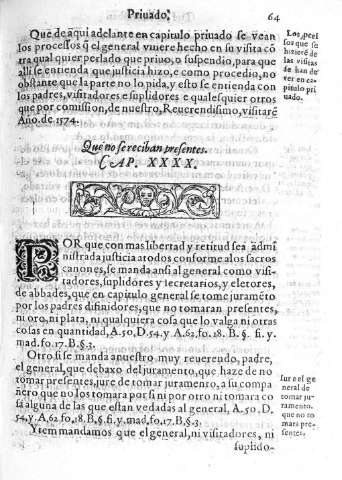 Priuado. 64
Que de aqui adelante en capitulo priuado se vean
los processos q̃ el general vuiere hecho en su visita cõ
tra qual quier perlado que priuo, o suspendio, para que
alli se entienda que justicia hizo, e como procedio, no
obstante que la parte no lo pida, y esto se entienda con
los padres, visitadores e suplidores e qualesquier otros
que por comission, de nuestro, Reuerendisimo, visitarẽ
Año, de 1574.
Los, proces
sos que se
hizierẽ de
las visitas
se han de
ver en ca-
pitulo pri
uado.
Que no se reciban presentes.
CAP. XXXX.
POR que con mas libertad y retitud sea admi
nistrada justicia a todos conforme a los sacros
canones, se manda ansi al general como visi-
tadores, suplidores y secretarios, y eletores,
de abbades, que en capitulo general se tome juramẽto
por los padres difinidores, que no tomaran presentes,
ni oro, ni plata, ni qualquiera cosa que lo valga ni otras
cosas en quantidad, A. 50, D. 54, y A. 62 fo. 18. B. §. fi. y
mad. fo. 17. B. §. 2.
Otro si se manda a nuestro muy reuerendo, padre,
el general, que debaxo del juramento, que haze de no
tomar presentes, jure de tomar juramento, a su compa
ñero que no los tomara por si ni por otro ni tomara co
sa alguna de las que estan vedadas al general, A. 50, D.
54, y A. 62 fo. 18. B. §. fi. y mad, fo. 17. B. §. 3.
Jure el ge
neral de
tomar ju-
ramento.
que no to
mara pre-
sentes.
Y tem mandamos que el general, ni visitadores, ni
suplido-